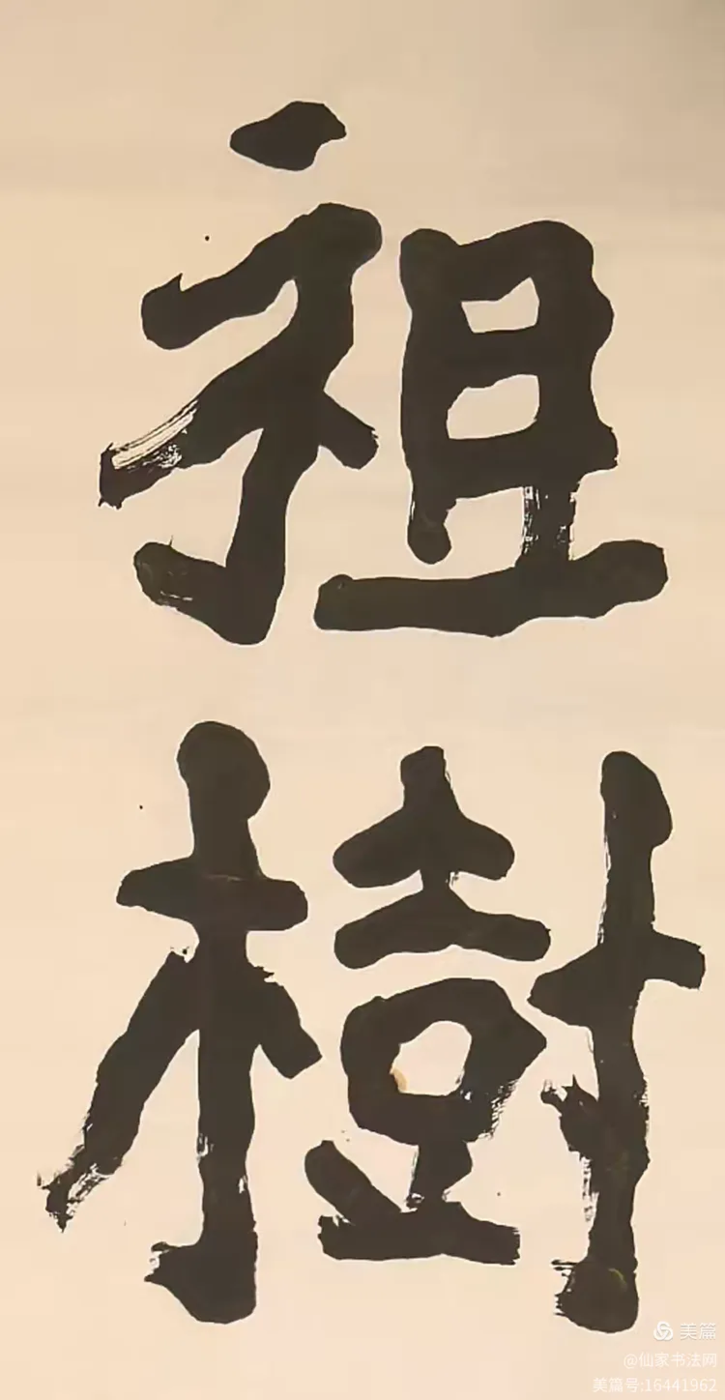 祖
樹
美篇
@仙家书法网
美篇号:16441962